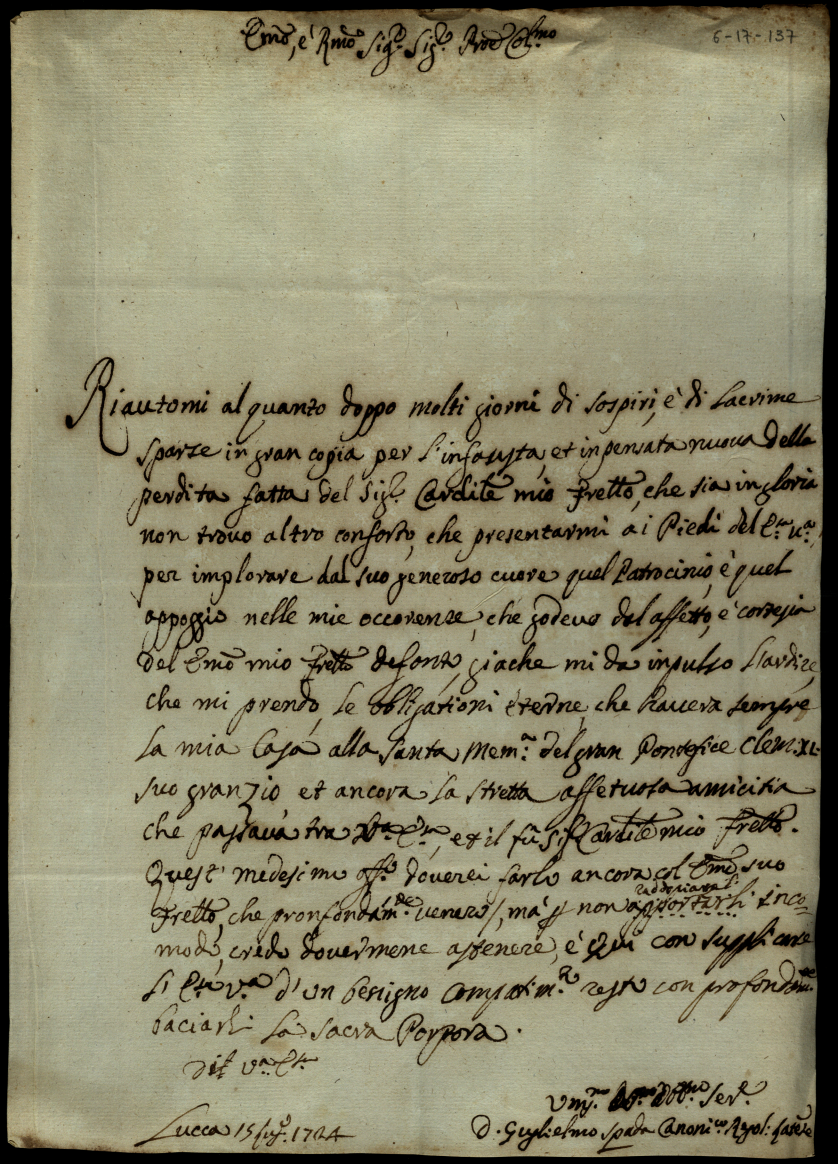 Emo, è Rmo Sigr. Sigr. Proe Colmo
6-17-137
Riautomi al quanto doppo molti giorni di sospiri, è di Lacrime
sparse in gran copia per l'infausta, et inpensata nuova della
perdita fatta del Sigr. Cardile mio Frello, che sia in gloria
non trovo altro conforto, che presentarmi ai Piedi del Em. va.
per implorare dal suo generoso cuore quel Patrocinio, è quel
appoggio nelle mie occorenze, che godevo dal affetto, è cortesia
del Emo mio Frello defonto, giache mi da inpulso l'ardire,
che mi prendo, le obligationi eterne, che havera sempre
la mia Casa alla santa Mem.a del gran Pontefice Clem. XI.
suo gran Zio, et ancora la stretta affetuosa amicitia
che passava tra Em., et il fù Sigr Cardile mio Frello.
Quest' medesimo offo. doverei farlo ancora col Emo suo
Frello, che profondam.te venero, mà non apportarli inco-
modo, credo dovermene astenere, è qui con supplicare
Em. va. d'un benigno Compatim.to resto con profondam.te
baciarli la sacra Porpora.
va. Em.
Lucca 15 1724
Serv.e
D. Guglielmo Spada Canonico Regol: Latere